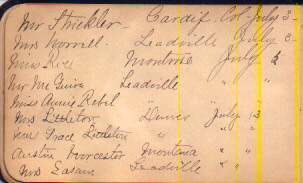 Mr Strickler - Cardif. Col. July 3-
Mrs Worrell. Leadville July 3
Montrose July
Mr McGuire Leadville " "
Miss Annie Rebil " "
Mrs Littleton Denver July 13
Grace Littleton " " "
Austin Worcester Montana " "
Mrs Leadville " "